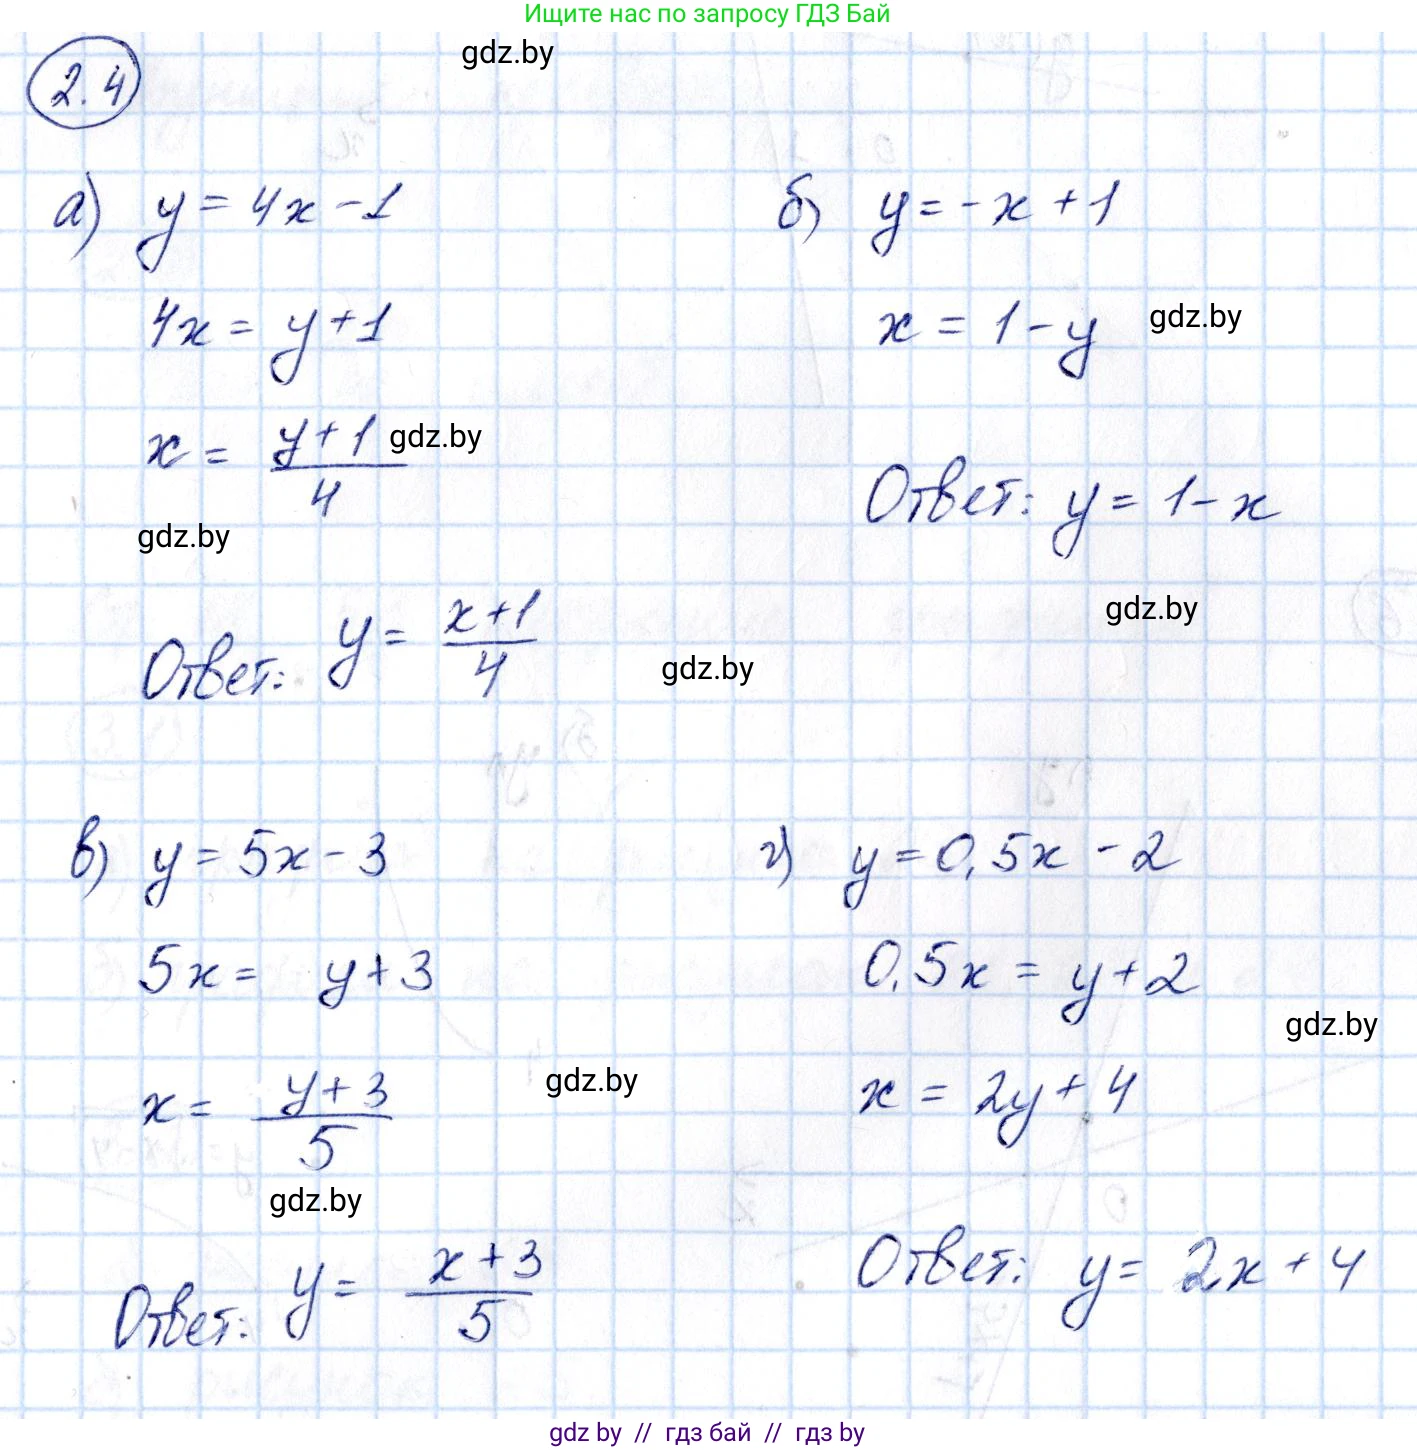 Ищите нас по запросу ГДЗ Бай
gdz.by
2.4
а) y = 4x - 1
4x = y + 1
x = (y + 1)/4
gdz.by
gdz.by
Ответ: y = (x + 1)/4
gdz.by
б) y = -x + 1
x = 1 - y
gdz.by
Ответ: y = 1 - x
gdz.by
в) y = 5x - 3
5x = y + 3
x = (y + 3)/5
gdz.by
gdz.by
Ответ: y = (x + 3)/5
г) y = 0,5x - 2
0,5x = y + 2
gdz.by
x = 2y + 4
Ответ: y = 2x + 4
gdz.by // гдз бай // гдз by